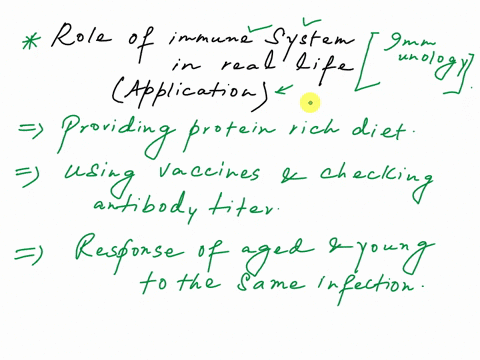 * Role of immune System
in real life
(Application) ←
[Imm
unology]
=> Providing protein rich diet.
=> using vaccines & checking
antibody titer.
=> Response of aged & young
to the same infection.